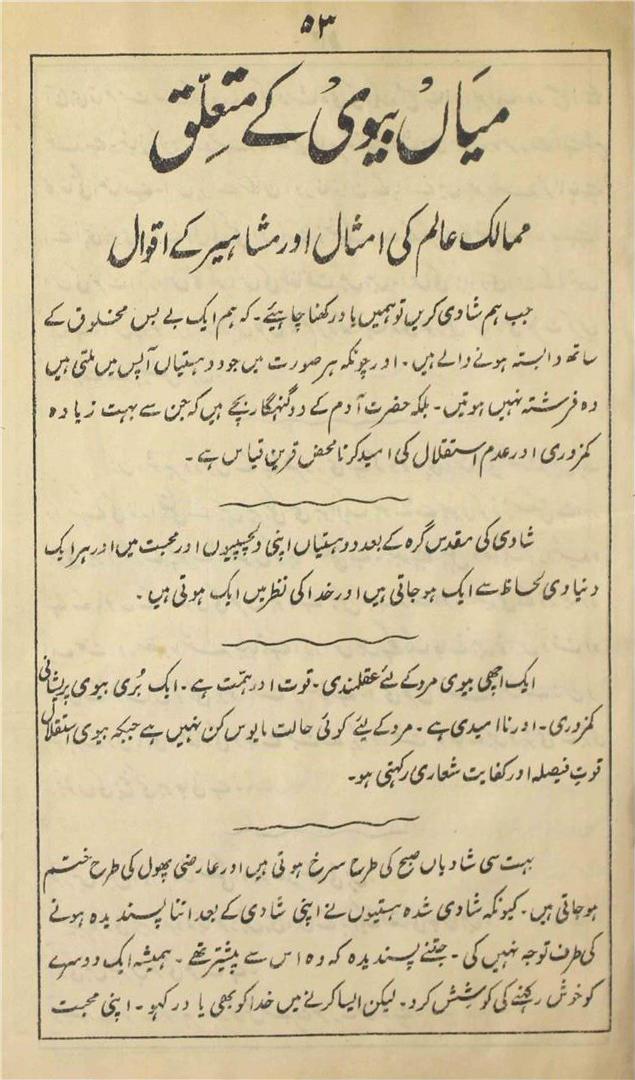 ۵۳
میاں بیوی کے متعلق
ممالک عالم کی امثال اور مشاہیر کے اقوال
جب ہم شادی کریں تو ہمیں یاد رکھنا چاہیئے۔ کہ ہم ایک بے بس مخلوق کے
ساتھ وابستہ ہونے والے ہیں۔ اور چونکہ ہر صورت میں جو دو ہستیاں آپس میں ملتی ہیں
وہ فرشتہ نہیں ہوتیں۔ بلکہ حضرت آدم کے دو گنہگار بچے ہیں کہ جن سے بہت زیادہ
کمزوری اور عدم استقلال کی امید کرنا محض قرین قیاس ہے۔
شادی کی مقدس گرہ کے بعد دو ہستیاں اپنی دلچسپیوں اور محبت میں اور ہر ایک
دنیاوی لحاظ سے ایک ہو جاتی ہیں اور خدا کی نظر میں ایک ہوتی ہیں۔
ایک اچھی بیوی مرد کے لئے عقلمندی۔ قوت اور ہمت ہے۔ ایک بُری بیوی پریشانی
کمزوری۔ اور ناامیدی ہے۔ مرد کے لیئے کوئی حالت مایوس کن نہیں ہے جبکہ بیوی استقلال
قوتِ فیصلہ اور کفایت شعاری رکھتی ہو۔
بہت سی شادیاں صبح کی طرح سرخ ہوتی ہیں اور عارضی پھول کی طرح ختم
ہو جاتی ہیں۔ کیونکہ شادی شدہ ہستیوں نے اپنی شادی کے بعد اتنا پسندیدہ ہونے
کی طرف توجہ نہیں کی۔ جتنے پسندیدہ کہ وہ اس سے پیشتر تھے۔ ہمیشہ ایک دوسرے
کو خوش رکھنے کی کوشش کرو۔ لیکن ایسا کرنے میں خدا کو بھی یاد رکھو۔ اپنی محبت